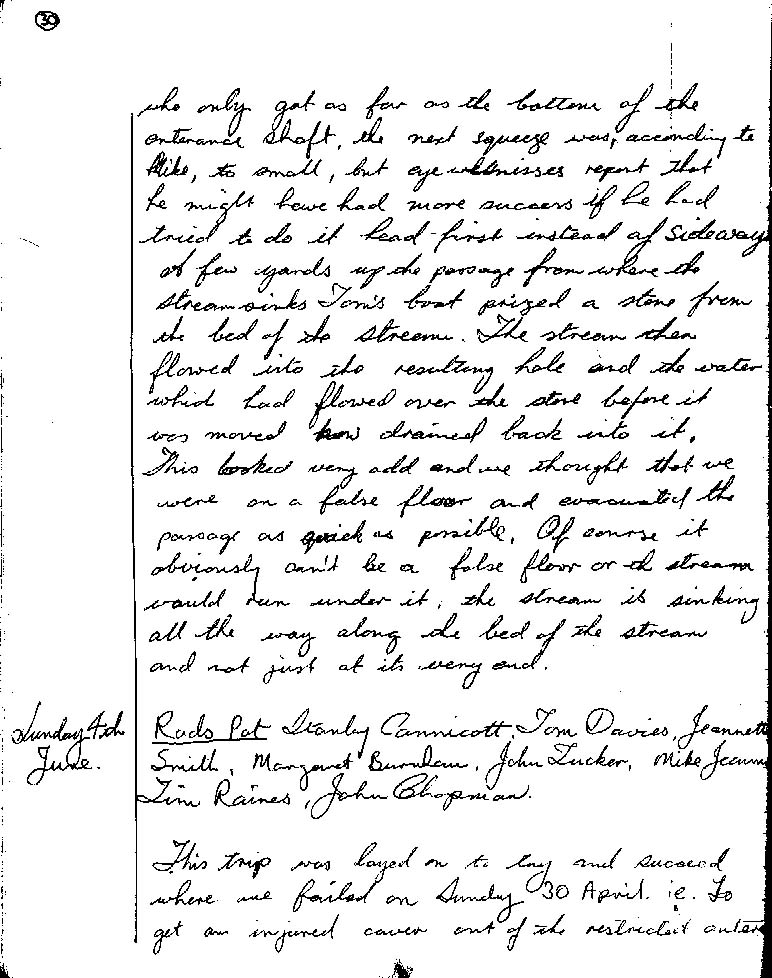 30
who only got as far as the bottom of the
enterance shaft, the next squeeze was, according to
Mike, to small, but eye witnisses report that
he might have had more success if he had
tried to do it head first instead of sideway
A few yards up the passage from where the
stream sinks Tom's boot prized a stone from
the bed of the stream. The stream then
flowed into the resulting hole and the water
which had flowed over the stone before it
was moved drained back into it.
This looked very odd and we thought that we
were on a false floor and evacuated the
passage as quick as possible. Of course it
obviously can't be a false floor or th stream
would run under it, the stream is sinking
all the way along the bed of the stream
and not just at its very end.
Sunday 4th
June.
Rods Pot Stanley Cannicott, Tom Davies, Jeannett
Smith, Margaret, John Tucker, Mike
Tim Raines, John Chapman.
This trip was layed on to try and succeed
where we failed on Sunday 30 April. ie. To
get an injured caver out of the restricted enter